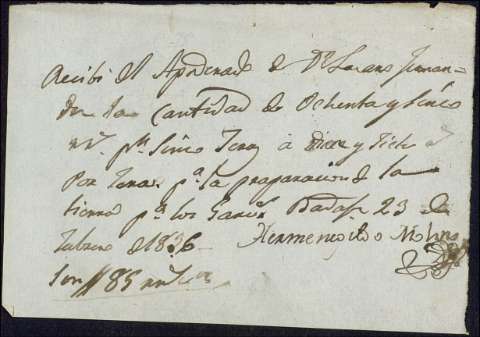 Recibi del Apoderado de Dn. Lazaro Fernan=
dez la Cantidad de Ochenta y Sinco
rr.s pr. Sinco a Diez y Siete
Por pa. la preparacion de la
tierra pa. los Badajz. 23 de
Febrero de 1836
Hermenegildo Molina
Son // 85 rr.s